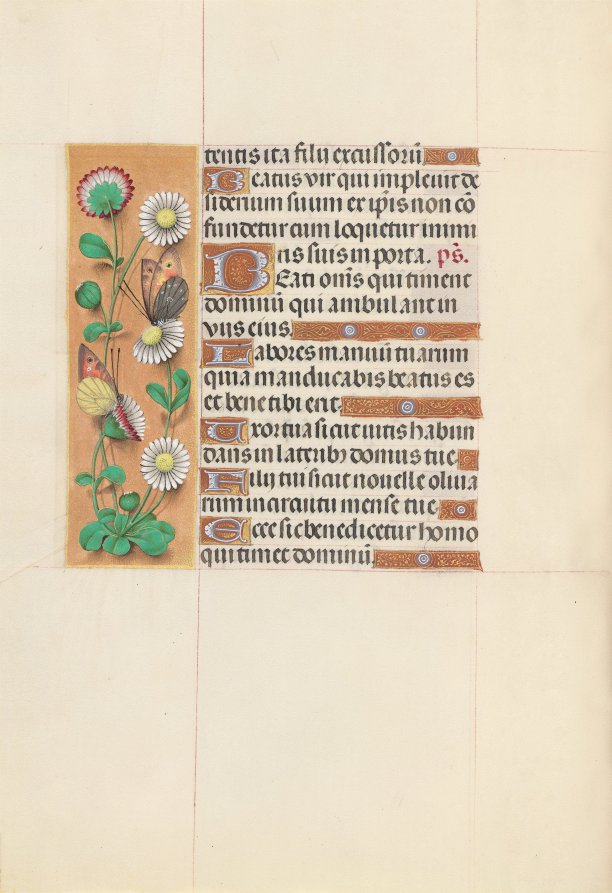 tentis ita filii excussorū
Beatus vir qui impleuit de
siderium suum ex ip̄is non cō
fundetur cum loquetur inimi
cis suis in porta. pš.
Beati om̄s qui timent
dominū qui ambulant in
viis eius
Labores manuū tuarum
quia manducabis beatus es
et bene tibi erit
Uxor tua sicut uitis habun
dans in laterib9 domus tue
Filii tui sicut nouelle oliua
rum in circuitu mense tue
Ecce sic benedicetur homo
qui timet dominū.